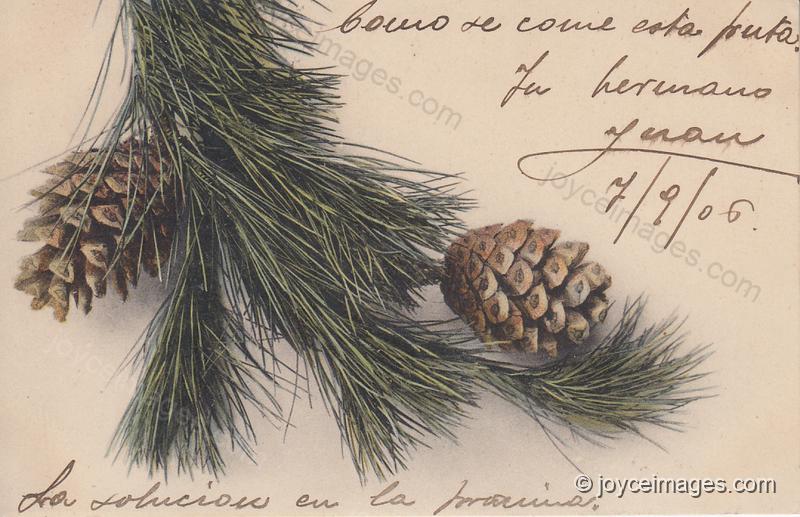 Como se come esta fruta.
Tu hermano
Juan
7/9/06.
La solucion en la proxima.
© joyceimages.com
joyceimages.com
joyceimages.com
joyceimages.com